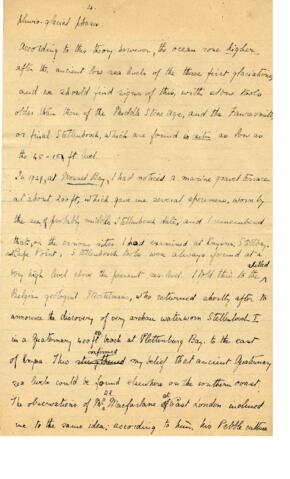 4.
pluvio-glacial phases.
According to this theory however, the ocean rose higher
after the ancient low sea levels of the three first glaciations
and we should find signs of this, with stone tools
older than those of the Middle Stone Age, and the Fauresmith
or final Stellenbosch, which are found in situ as low as
the 45 - ft level.
In 1929, at Mossel Bay, I had noticed a marine gravel terrace
at about 200 ft, which gave me several specimens, worn by
the sea, of probably middle Stellenbosch date, and I remembered
that, on the various sites I had examined at Knysna, Stilbay,
Cape Point, Stellenbosch tools were always found at a
very high level above the present sea-level. I told this to the skilled
Belgian geologist, who returned shortly after to
announce the discovery of very archaic waterworn Stellenbosch I,
in a Quaternary 200 ft beach at Plettenburg Bay, to the east
of Knysna. This confirmed my belief that ancient Quaternary
sea levels could be found elsewhere on the southern coast.
The observations of Macfarlane at East London inclined
me to the same idea; according to him, his Pebble culture